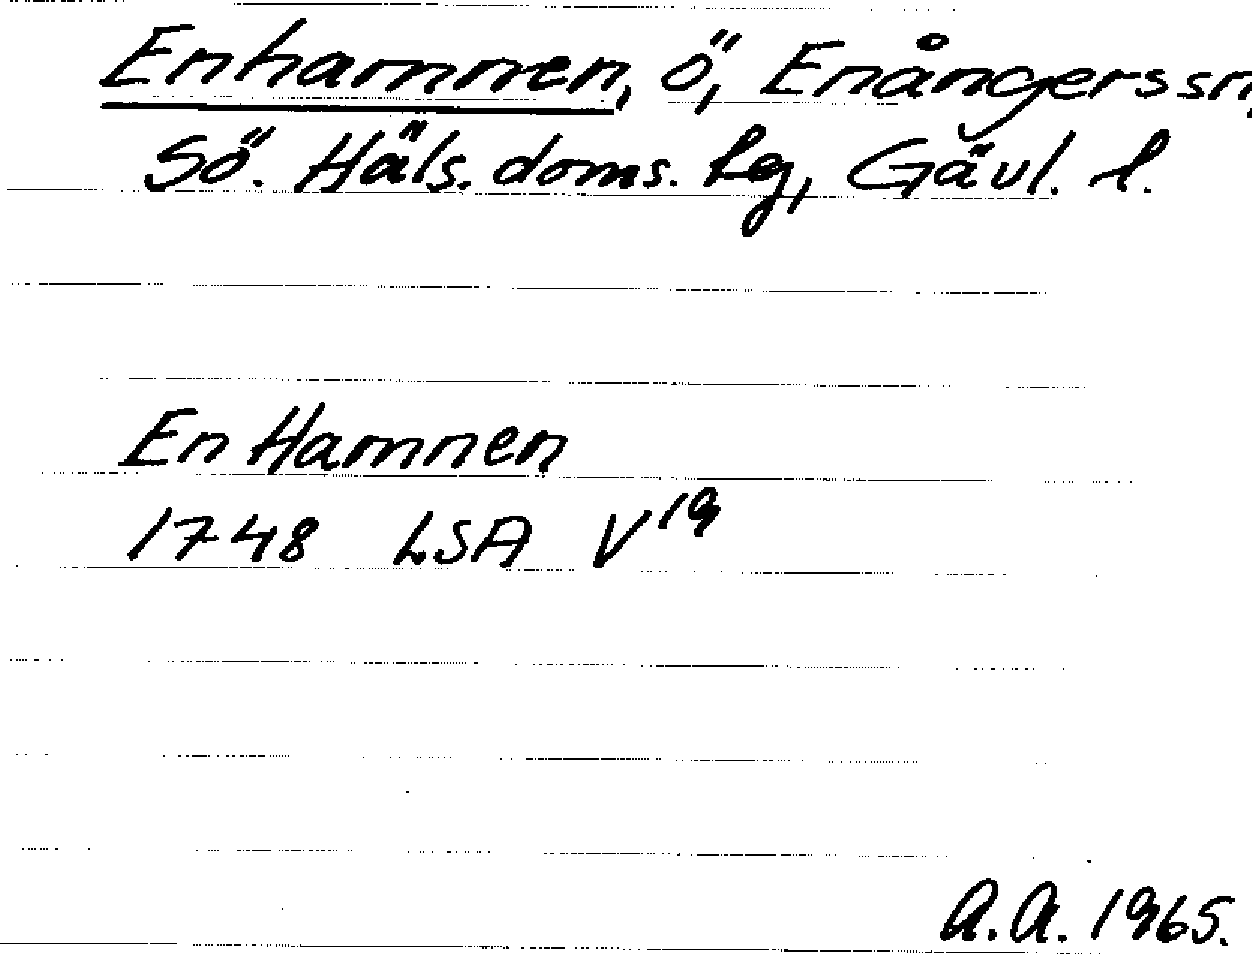 Enhamnen, ö, Enångers sn,
Sö. Häls. doms. hg, Gävl. l.
En Hamnen
1748 LSA V19
A.A. 1965.